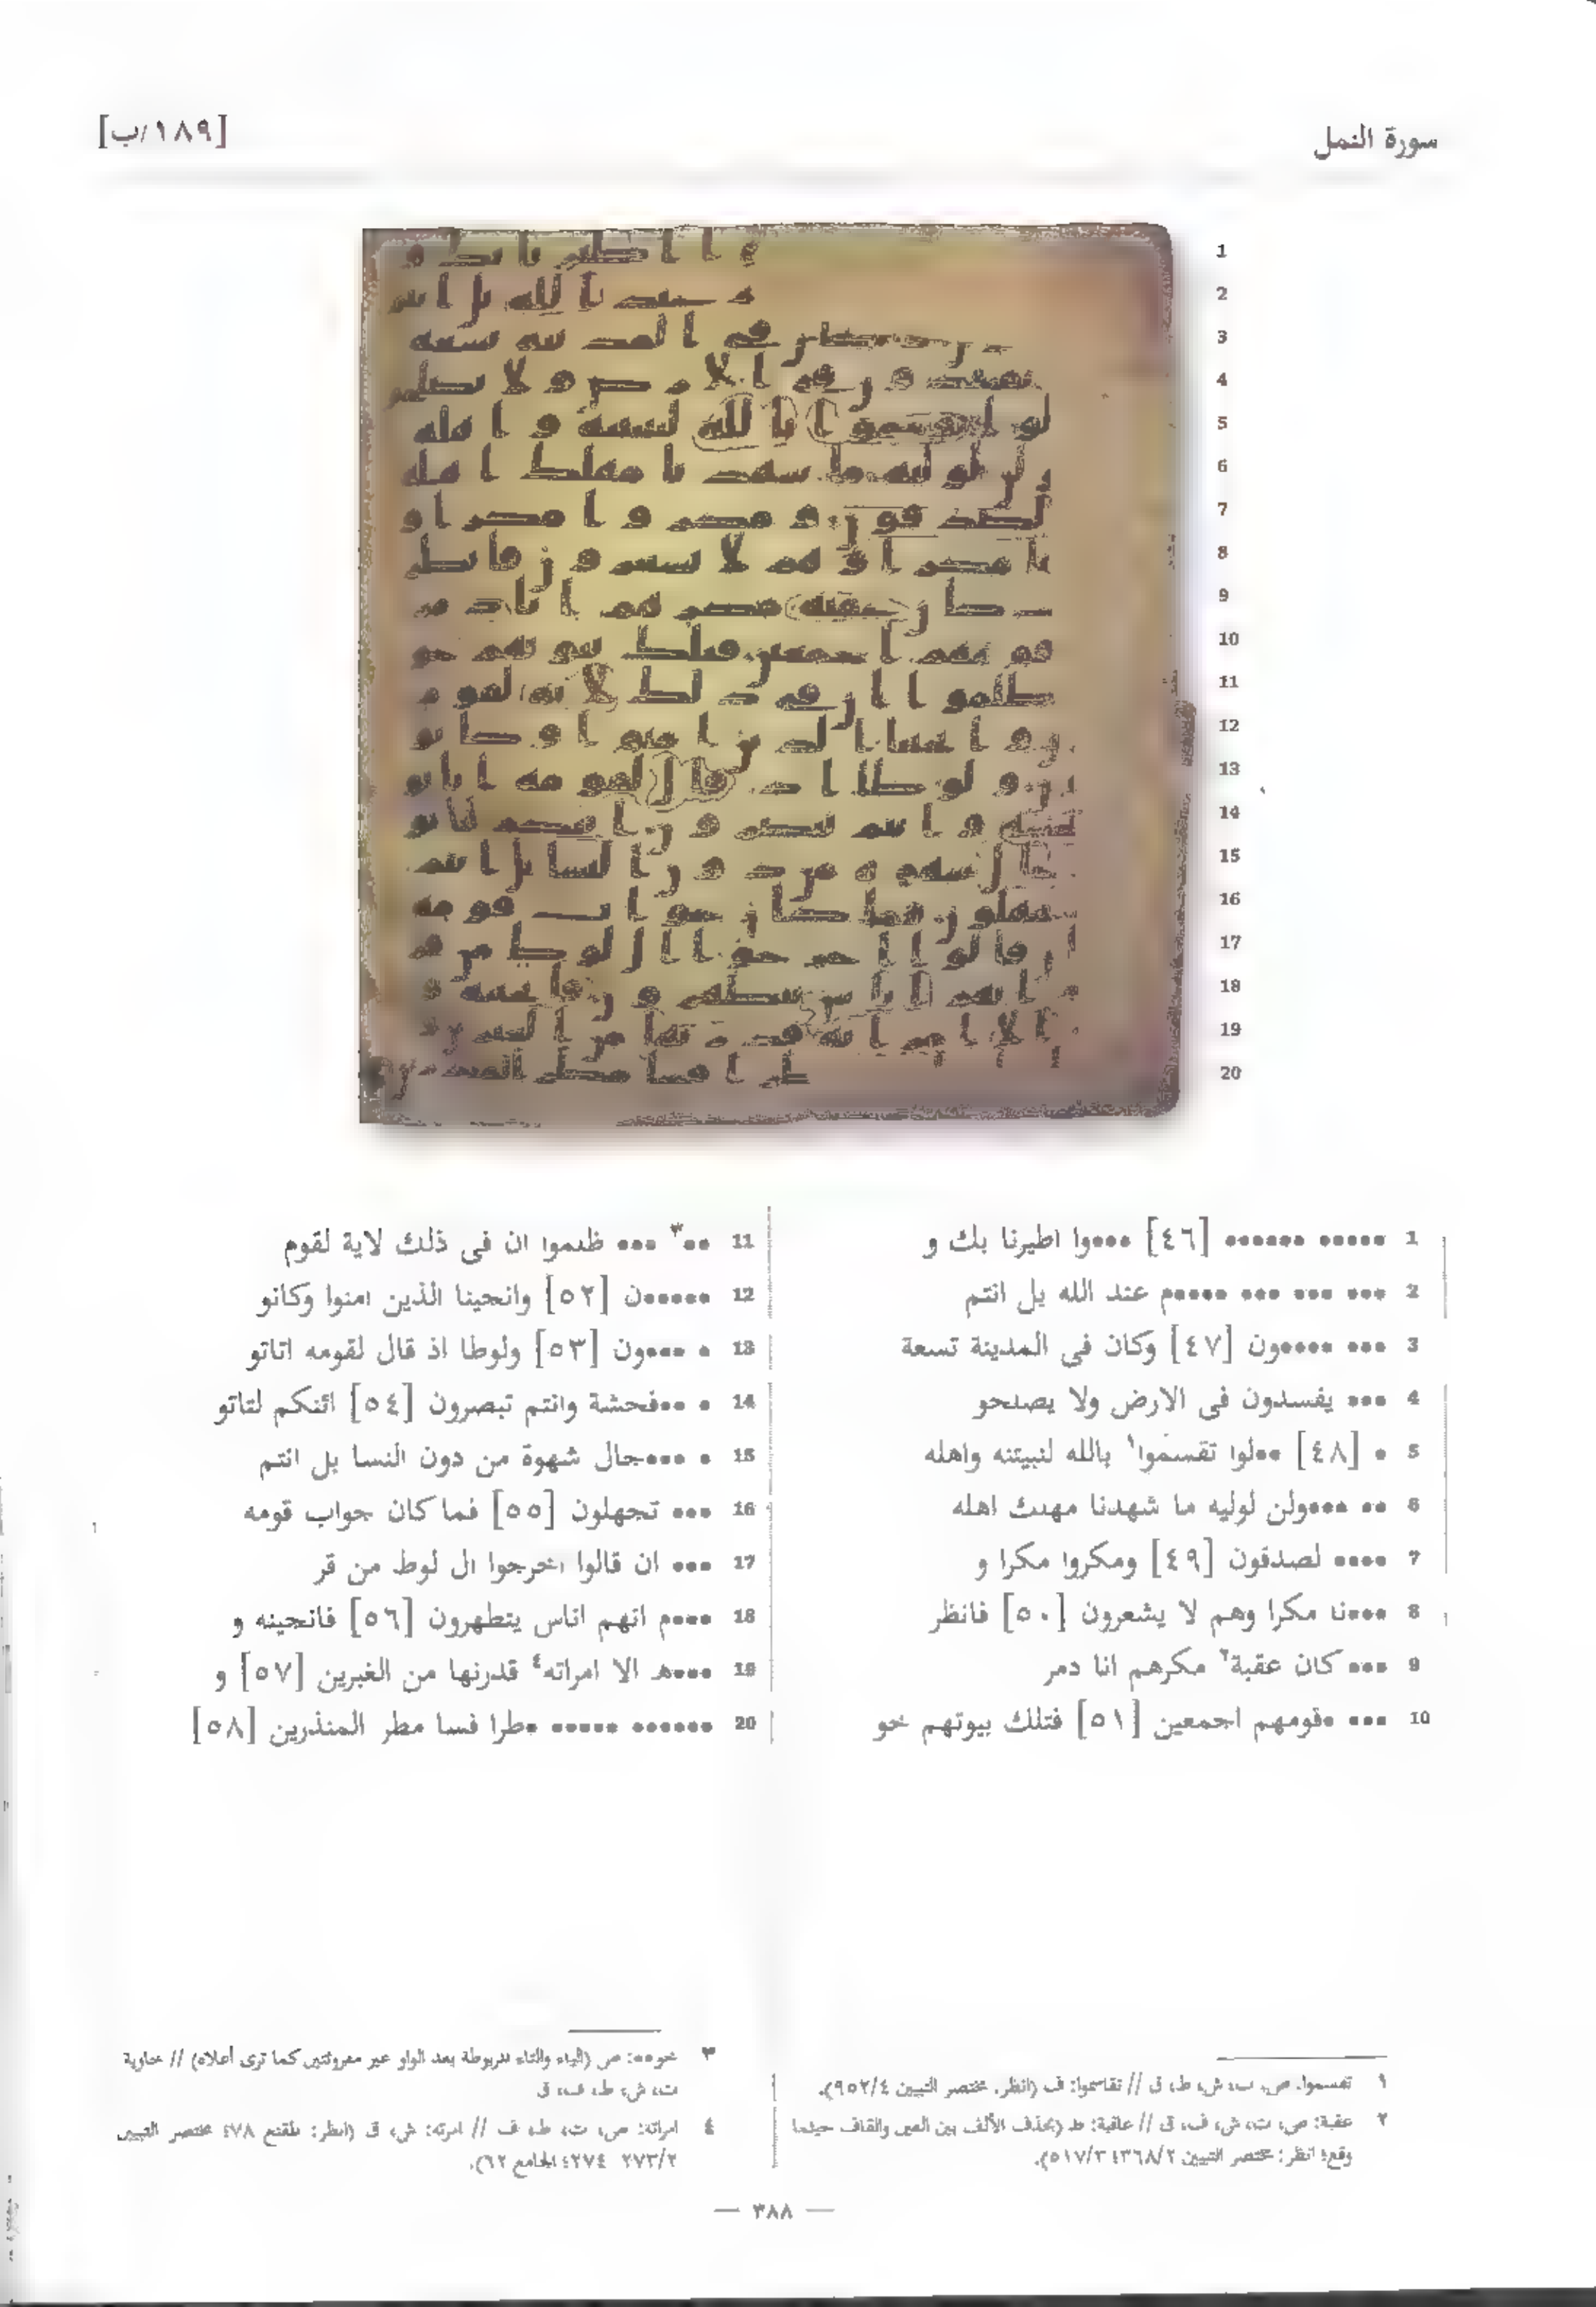 سورة النمل
[١٨٩/ب]
1 ••••• •••••• [٤٦] •••وا اطيرنا بك و
2 ••• ••• ••• •••••م عند الله بل انتم
3 ••• •••••ون [٤٧] وكان فى المدينة تسعة
4 ••• يفسدون فى الارض ولا يصلحو
5 • [٤٨] ••لوا تقسموا١ بالله لنبيتنه واهله
6 •• ••••ولن لوليه ما شهدنا مهلك اهله
7 •••• لصدقون [٤٩] ومكروا مكرا و
8 •••نا مكرا وهم لا يشعرون [٥٠] فانظر
9 ••• كان عقبة٢ مكرهم انا دمر
10 ••• •قومهم اجمعين [٥١] فتلك بيوتهم خو
11 ••٣ ••• ظلموا ان فى ذلك لاية لقوم
12 ••••••ن [٥٢] وانجينا الذين امنوا وكانو
13 • ••••ون [٥٣] ولوطا اذ قال لقومه اتاتو
14 • •••فحشة وانتم تبصرون [٥٤] ائنكم لتاتو
15 • ••••جال شهوة من دون النسا بل انتم
16 ••• تجهلون [٥٥] فما كان جواب قومه
17 ••• ان قالوا اخرجوا ال لوط من قر
18 ••••م انهم اناس يتطهرون [٥٦] فانجينه و
19 ••••ه الا امراته٤ قدرنها من الغبرين [٥٧] و
20 •••••• ••••• •طرا فسا مطر المنذرين [٥٨]
١ تقسموا: ص، ت، ش، ط، ق // تقاسموا: ف (انظر: مختصر التبيين ٩٥٢/٤).
٢ عقبة: ص، ت، ش، ف، ق // عاقبة: ط (بحذف الألف بين العين والقاف حيثما
وقع؛ انظر: مختصر التبيين ٣٦٨/٢؛ ٥١٧/٣).
٣ خو••: ص (الياء والتاء المربوطة بعد الواو غير مقروئتين كما ترى أعلاه) // خاوية
ت، ش، ط، ف، ق
٤ امراته: ص، ت، ط، ف // امرته: ش، ق (انظر: المقنع ٧٨؛ مختصر التبيين
٢٧٣/٢-٢٧٤؛ الجامع ٦٢).
— ٣٨٨ —